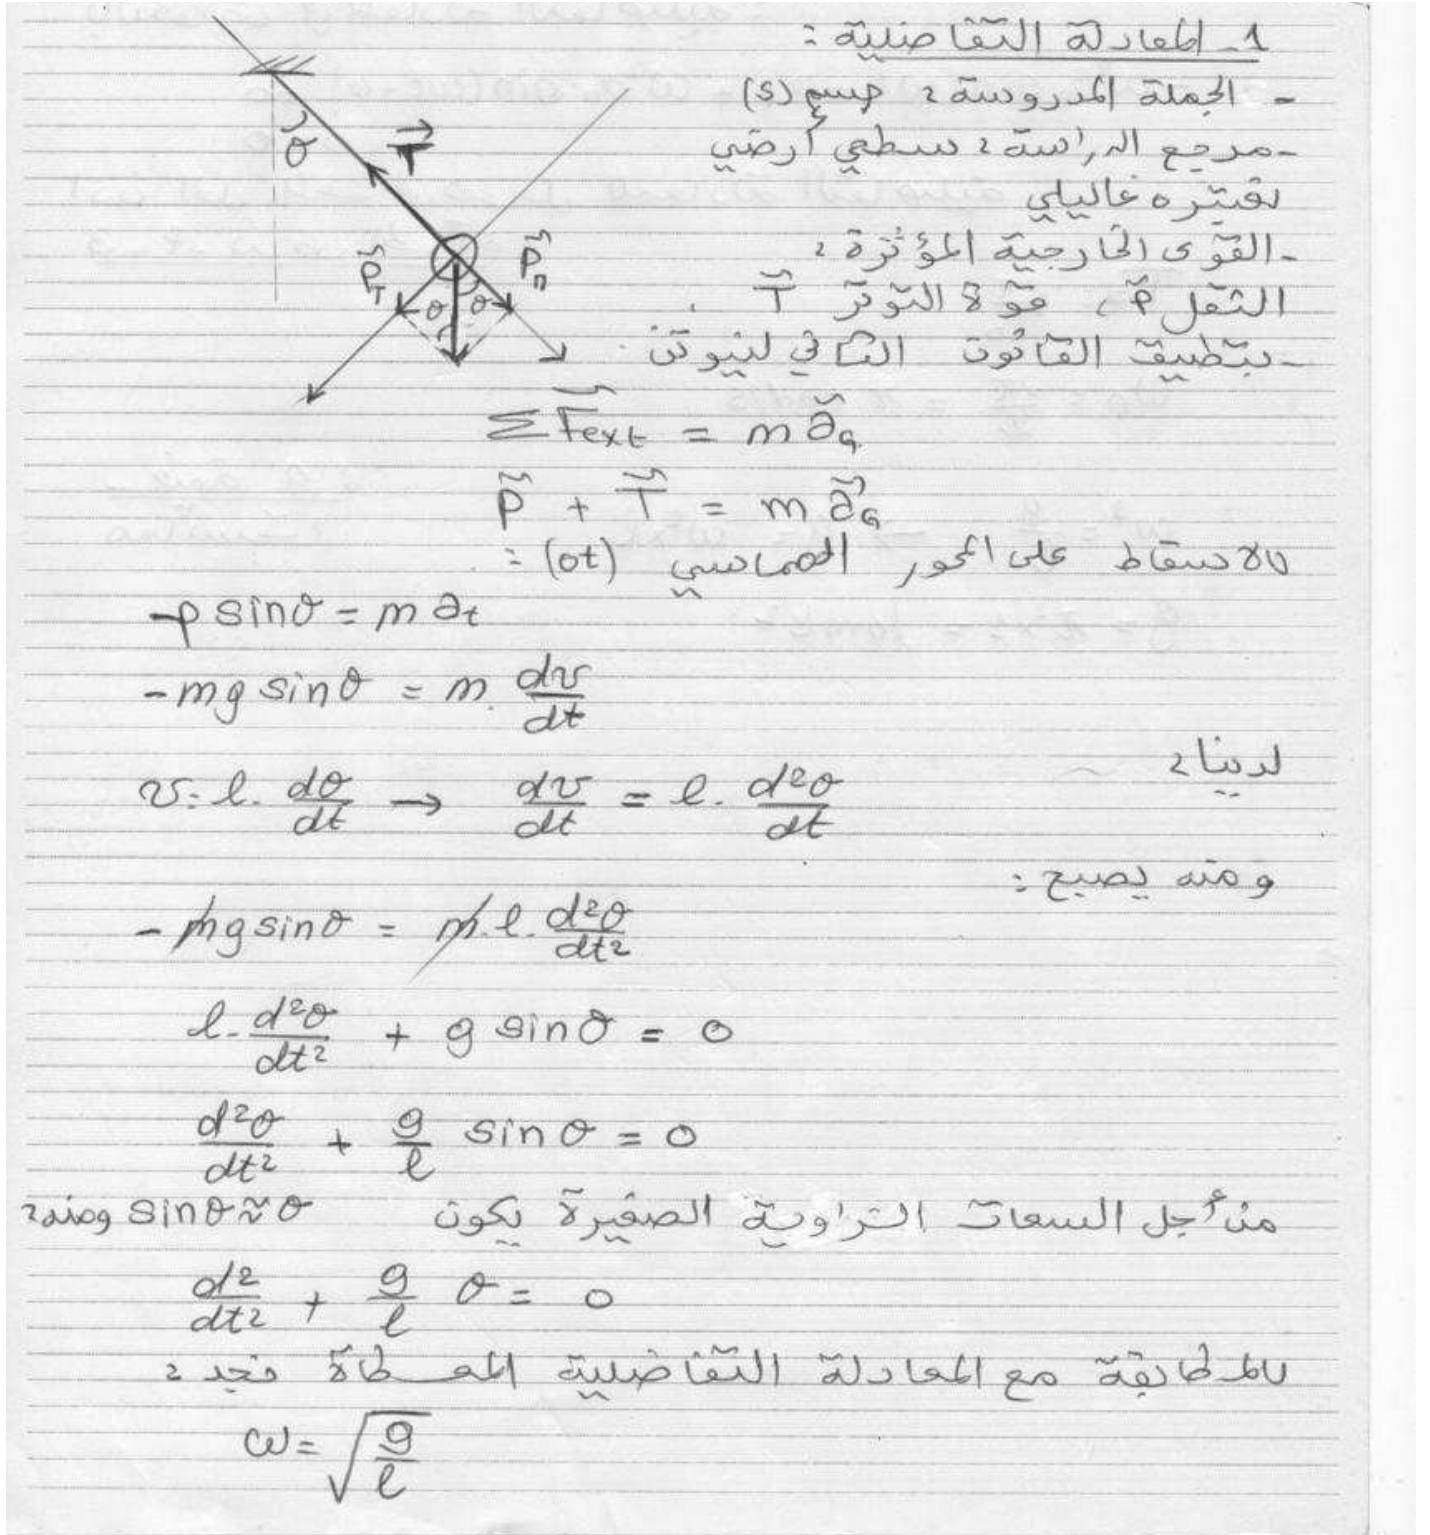 1- المعادلة التفاضلية :
- الجملة المدروسة : جسم (S)
- مرجع الدراسة : سطحي أرضي
نعتبره غاليلي
- القوى الخارجية المؤثرة :
الثقل P ، قوة التوتر T .
- بتطبيق القانون الثاني لنيوتن
θ
T
P_T
P_n
θ θ
Σ F_ext = m a_G
P + T = m a_G
بالاسقاط على المحور المماسي (ot) :
-p sinθ = m a_t
-mg sinθ = m. dv/dt
لدينا :
v = l. dθ/dt → dv/dt = l. d²θ/dt
ومنه يصبح :
- mg sinθ = m.l. d²θ/dt²
l. d²θ/dt² + g sinθ = 0
d²θ/dt² + g/l sinθ = 0
من أجل السعات الزاوية الصغيرة يكون sinθ ≈ θ ومنه :
d²/dt² + g/l θ = 0
بالمطابقة مع المعادلة التفاضلية المعطاة نجد :
ω = √(g/l)